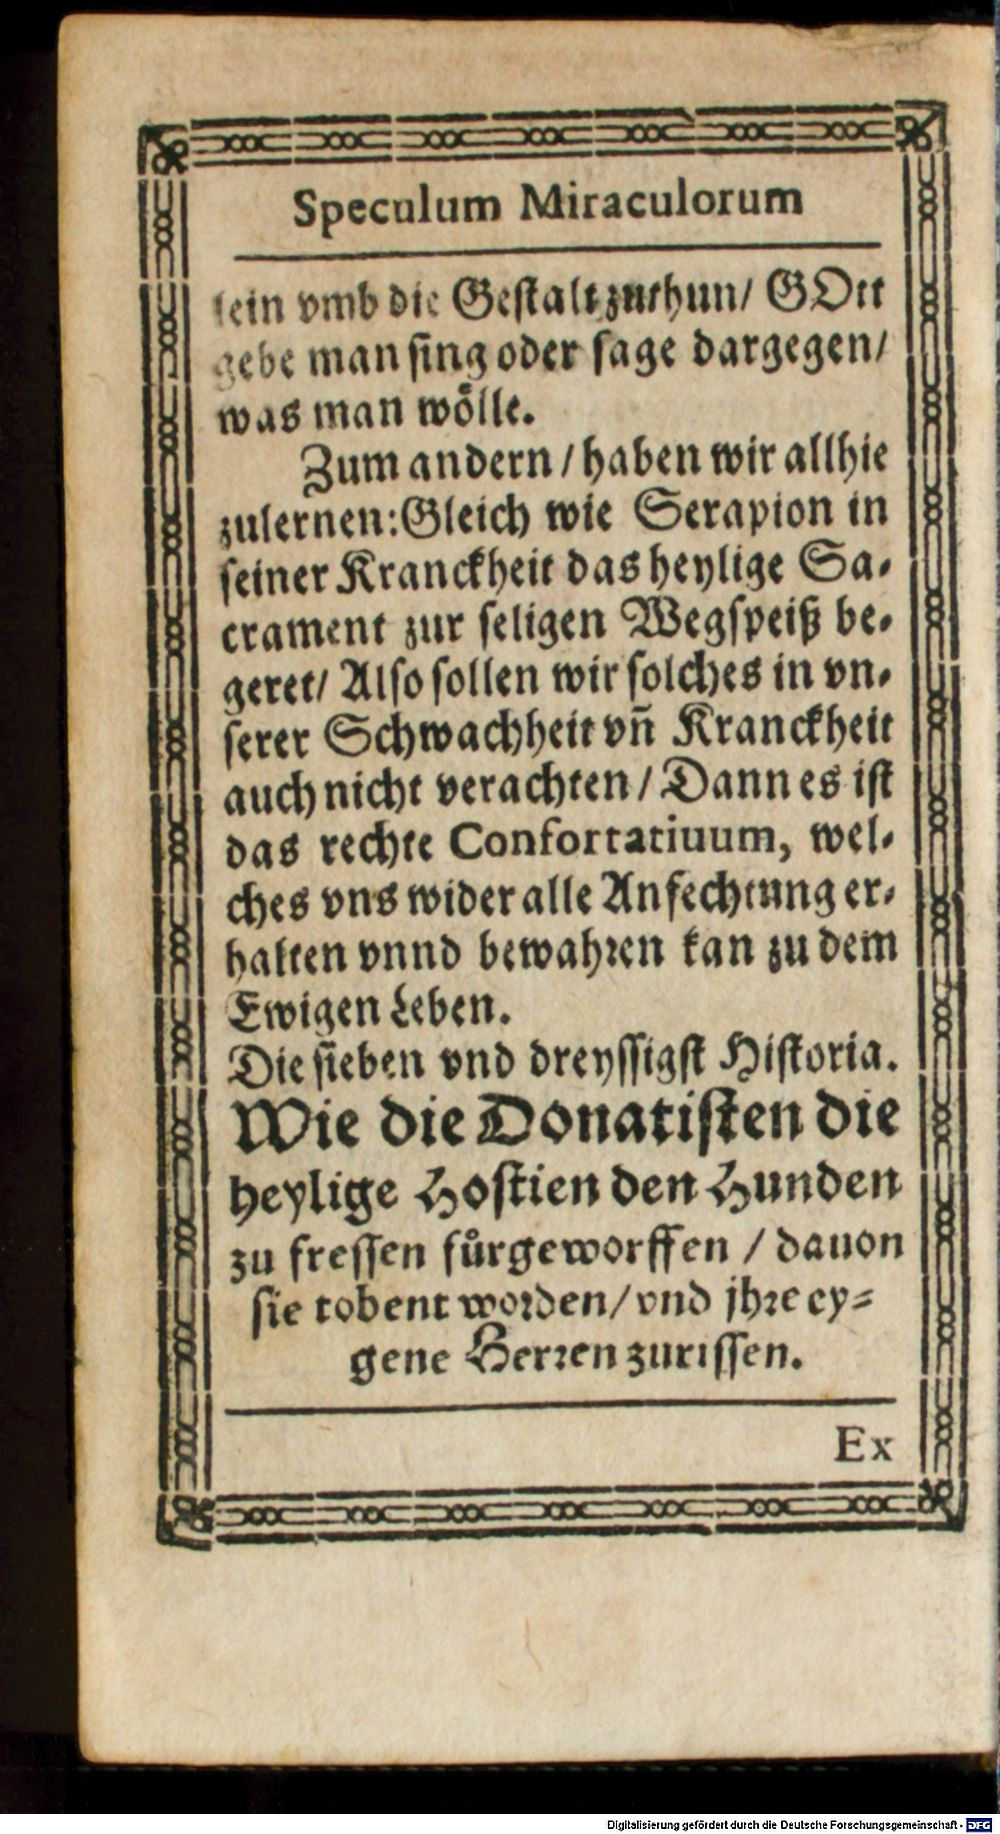 Speculum Miraculorum
lein vmb die Gestalt zuthun/ GOtt
gebe man sing oder sage dargegen/
was man wölle.
Zum andern/ haben wir allhie
zulernen: Gleich wie Serapion in
seiner Kranckheit das heylige Sa-
crament zur seligen Wegspeiß be-
geret/ Also sollen wir solches in vn-
serer Schwachheit vn̄ Kranckheit
auch nicht verachten/ Dann es ist
das rechte Confortatiuum, wel-
ches vns wider alle Anfechtung er-
halten vnnd bewahren kan zu dem
Ewigen Leben.
Die sieben vnd dreyssigst Historia.
Wie die Donatisten die
heylige Hostien den Hunden
zu fressen fůrgeworffen / dauon
sie tobent worden/ vnd jhre ey-
gene Herren zurissen.
Ex
Digitalisierung gefördert durch die Deutsche Forschungsgemeinschaft - DFG